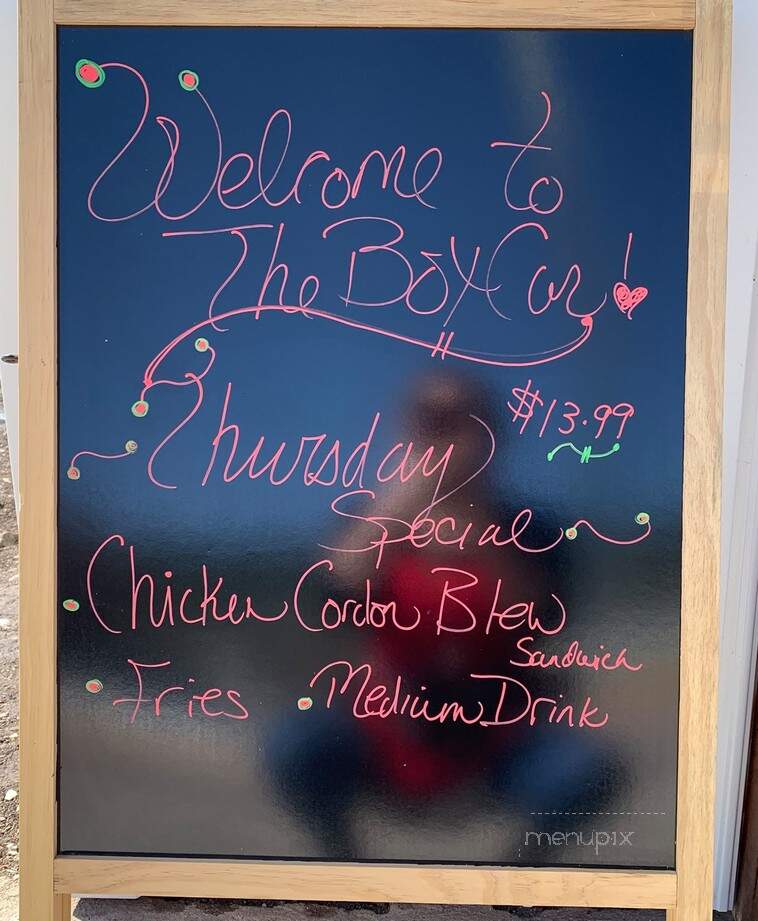 Welcome to
The BoxCar!
Thursday
$13.99
Special
Chicken Cordon Blew
Sandwich
Fries
Medium Drink
menupix